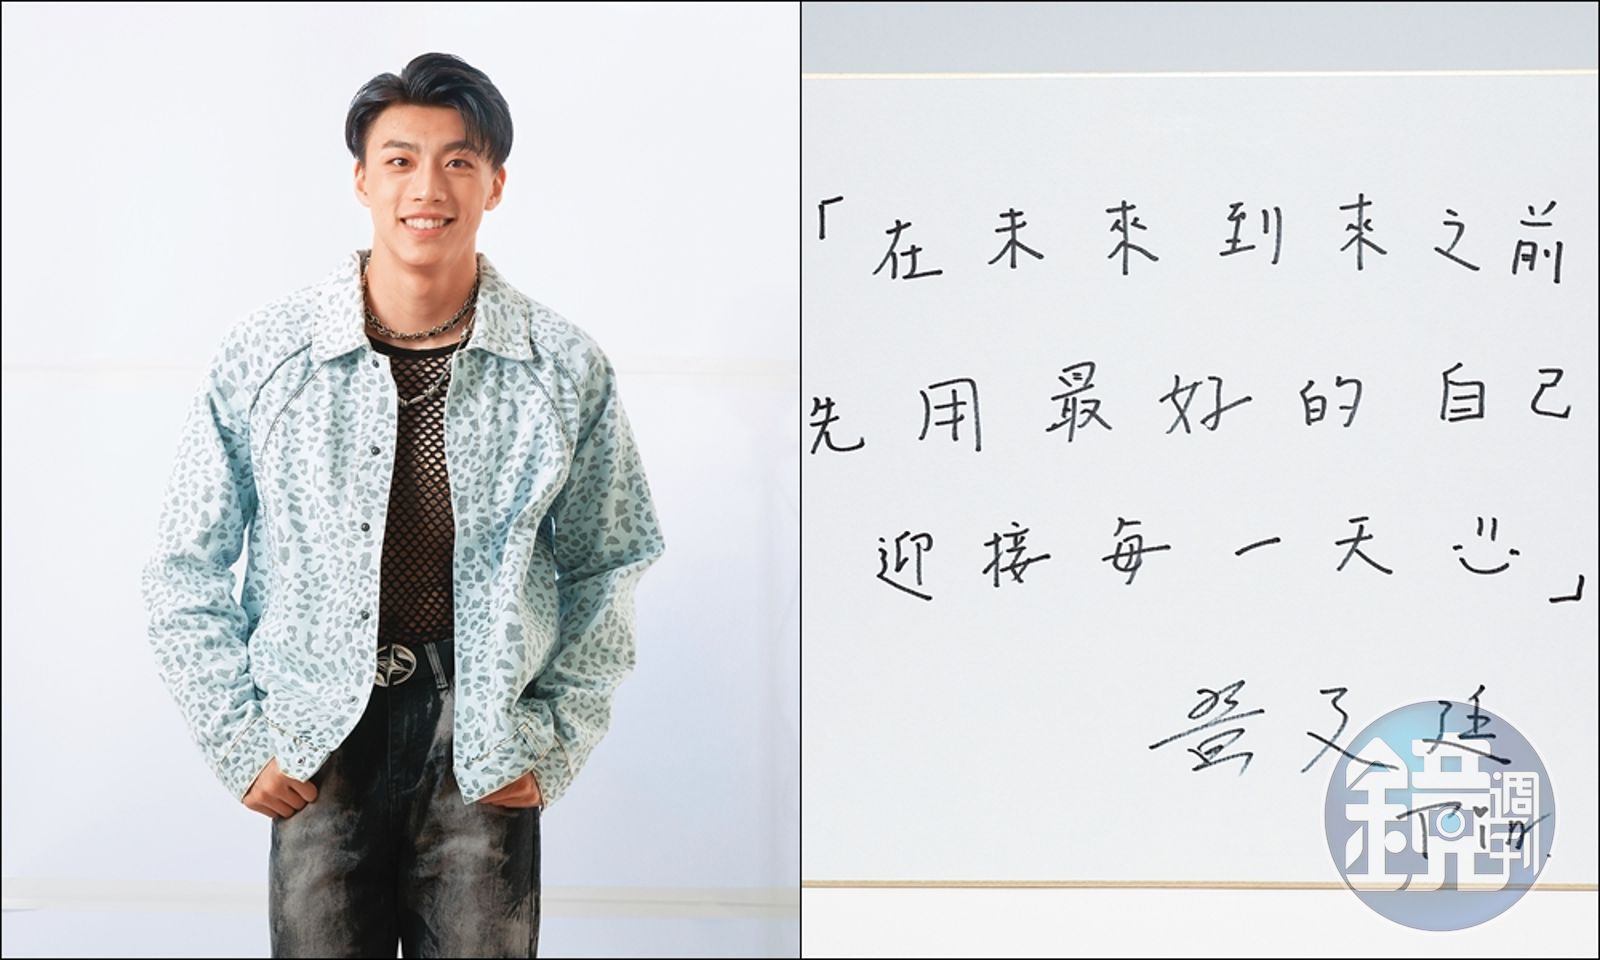 「在未來到來之前
先用最好的自己
迎接每一天 」
文廷
Tin.
鏡週刊